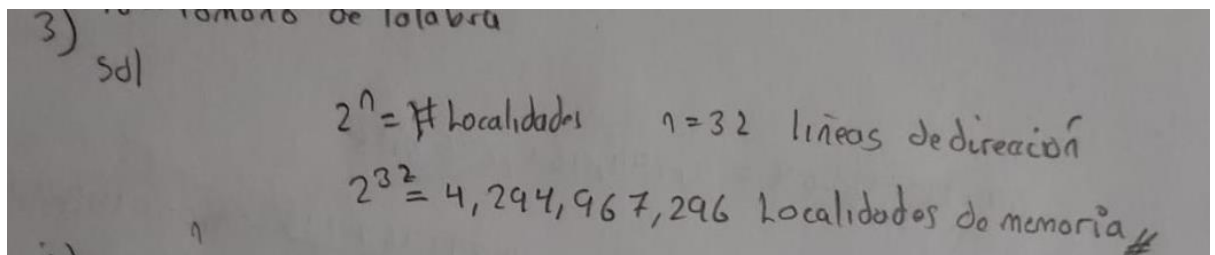 3) tamaño de palabra
Sol
2^n = # Localidades n = 32 lineas de direación
2^32 = 4,294,967,296 Localidades de memoria